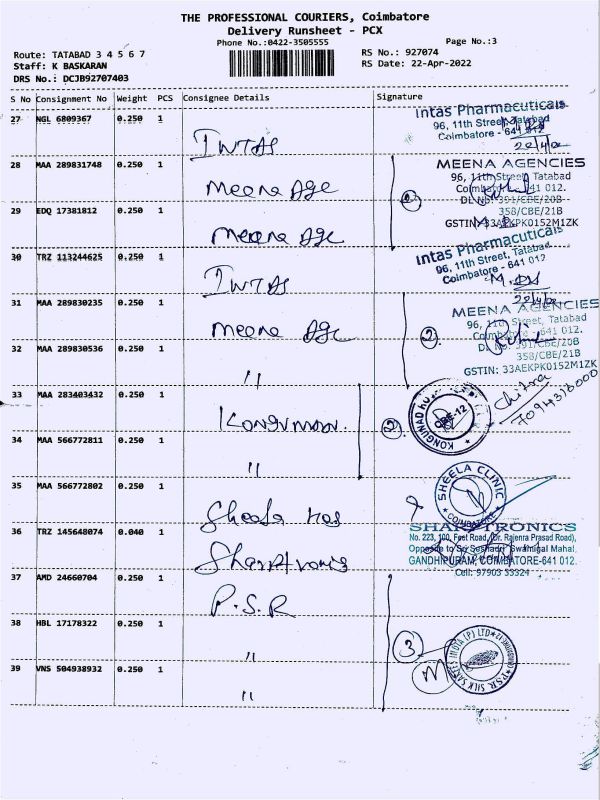 THE PROFESSIONAL COURIERS, Coimbatore
Delivery Runsheet - PCX
Phone No.:0422-3505555
Page No.:3
Route: TATABAD 3 4 5 6 7
RS No.: 927074
Staff: K BASKARAN
RS Date: 22-Apr-2022
DRS No.: DCJB92707403
S No Consignment No Weight PCS Consignee Details Signature
27 NGL 6809367 0.250 1
Intas Pharmaceuticals
96, 11th Street, Tatabad
Coimbatore - 641 012
INTAS
28 MAA 289831748 0.250 1
MEENA AGENCIES
96, 11th Street, Tatabad
Coimbatore - 641 012.
DL No: 391/CBE/20B
358/CBE/21B
GSTIN: 33AEKPK0152M1ZK
Meena Age
2
29 EDQ 17381812 0.250 1
Meena Age
30 TRZ 113244625 0.250 1
Intas Pharmaceuticals
96, 11th Street, Tatabad
Coimbatore - 641 012
INTAS
31 MAA 289830235 0.250 1
MEENA AGENCIES
96, 11th Street, Tatabad
Coimbatore - 641 012.
DL No: 391/CBE/20B
358/CBE/21B
GSTIN: 33AEKPK0152M1ZK
Meena Age
2.
32 MAA 289830536 0.250 1
"
33 MAA 283403432 0.250 1
CBE-12
Chitra
7094316000
2.
34 MAA 566772811 0.250 1
"
35 MAA 566772802 0.250 1
SHEELA CLINIC
COIMBATORE
Sheela Hos
36 TRZ 145648074 0.040 1
SHARPTRONICS
No. 223, 100, Feet Road, (Dr. Rajenra Prasad Road),
Opposite to Sri Seshadri Swamigal Mahal,
GANDHIPURAM, COIMBATORE-641 012.
Cell: 97903 33324
Sharptronis
37 AMD 24660704 0.250 1
P.S.R
38 HBL 17178322 0.250 1
"
3
P.S.R. SILK SAREES INDIA (P) LTD
39 VNS 504938932 0.250 1
"